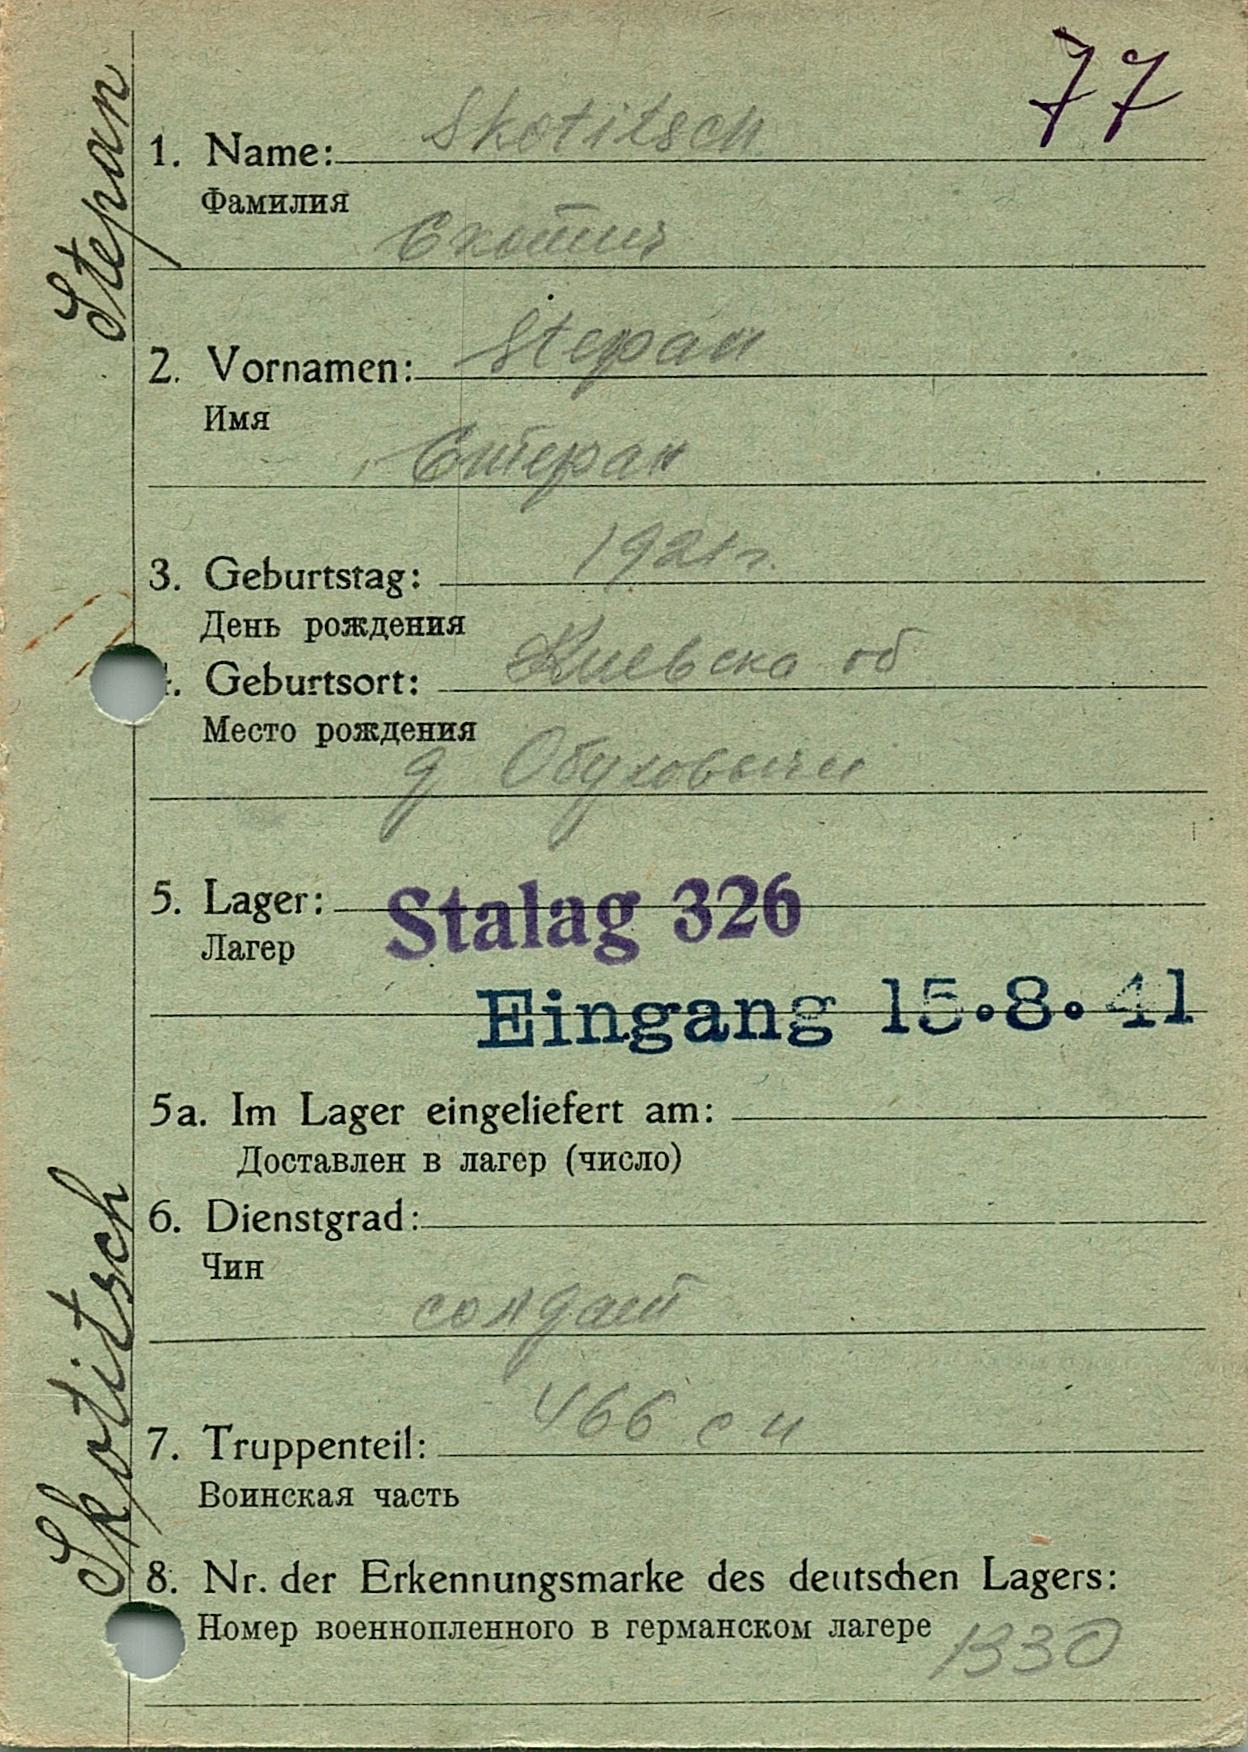 77
Stepan
1. Name: Skotitsch
Фамилия
Скотич
2. Vornamen: Stepan
Имя
Степан
3. Geburtstag: 1921 г.
День рождения
. Geburtsort: Киевска об
Место рождения
д Обуховичи
5. Lager: Stalag 326
Лагер
Eingang 15.8.41
5a. Im Lager eingeliefert am:
Доставлен в лагер (число)
6. Dienstgrad:
Чин
солдат
7. Truppenteil: 466 с п
Воинская часть
8. Nr. der Erkennungsmarke des deutschen Lagers:
Номер военнопленного в германском лагере 1330
Skotitsch